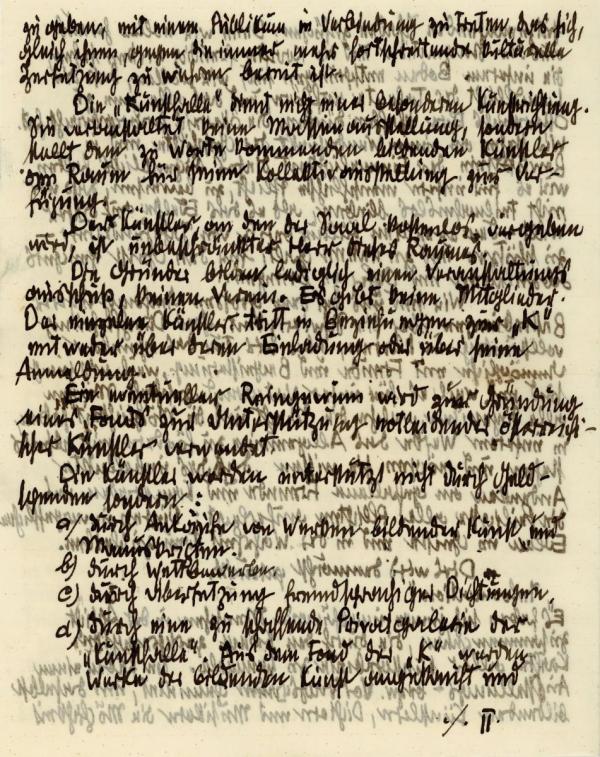 zu geben, mit einem Publikum in Verbindung zu treten, das sich,
gleich ihnen, gegen die immer mehr fortschreitende kulturelle
Zersetzung zu wehren bereit ist.
Die „Kunsthalle" dient nicht einer besonderen Kunstrichtung.
Sie veranstaltet keine Massenausstellung, sondern
stellt dem zu Worte kommenden bildenden Künstler
den Raum für seine Kollektivausstellung zur Ver-
fügung.
Der Künstler, an den der Saal kostenlos vergeben
wird, ist unbeschränkter Herr dieses Raumes.
Die Gründer bilden lediglich einen Veranstaltungs
ausschuß, keinen Verein. Es gibt keine Mitglieder.
Der einzelne Künstler tritt in Beziehungen zur „K"
entweder über deren Einladung oder über seine
Anmeldung.
Ein eventueller Reingewinn wird zur Gründung
eines Fonds zur Unterstützung notleidender österreichi-
scher Künstler verwendet.
Die Künstler werden unterstützt nicht durch Geld-
spenden sondern:
a) durch Ankäufe von Werken bildender Kunst und
Manuskripten.
b) durch Wettbewerbe.
c) durch Übersetzung fremdsprachiger Dichtungen,
d) durch eine zu schaffende Privatgalerie der
„Kunsthalle". Aus dem Fond der „K" werden
Werke der bildenden Kunst angekauft und
./. II.